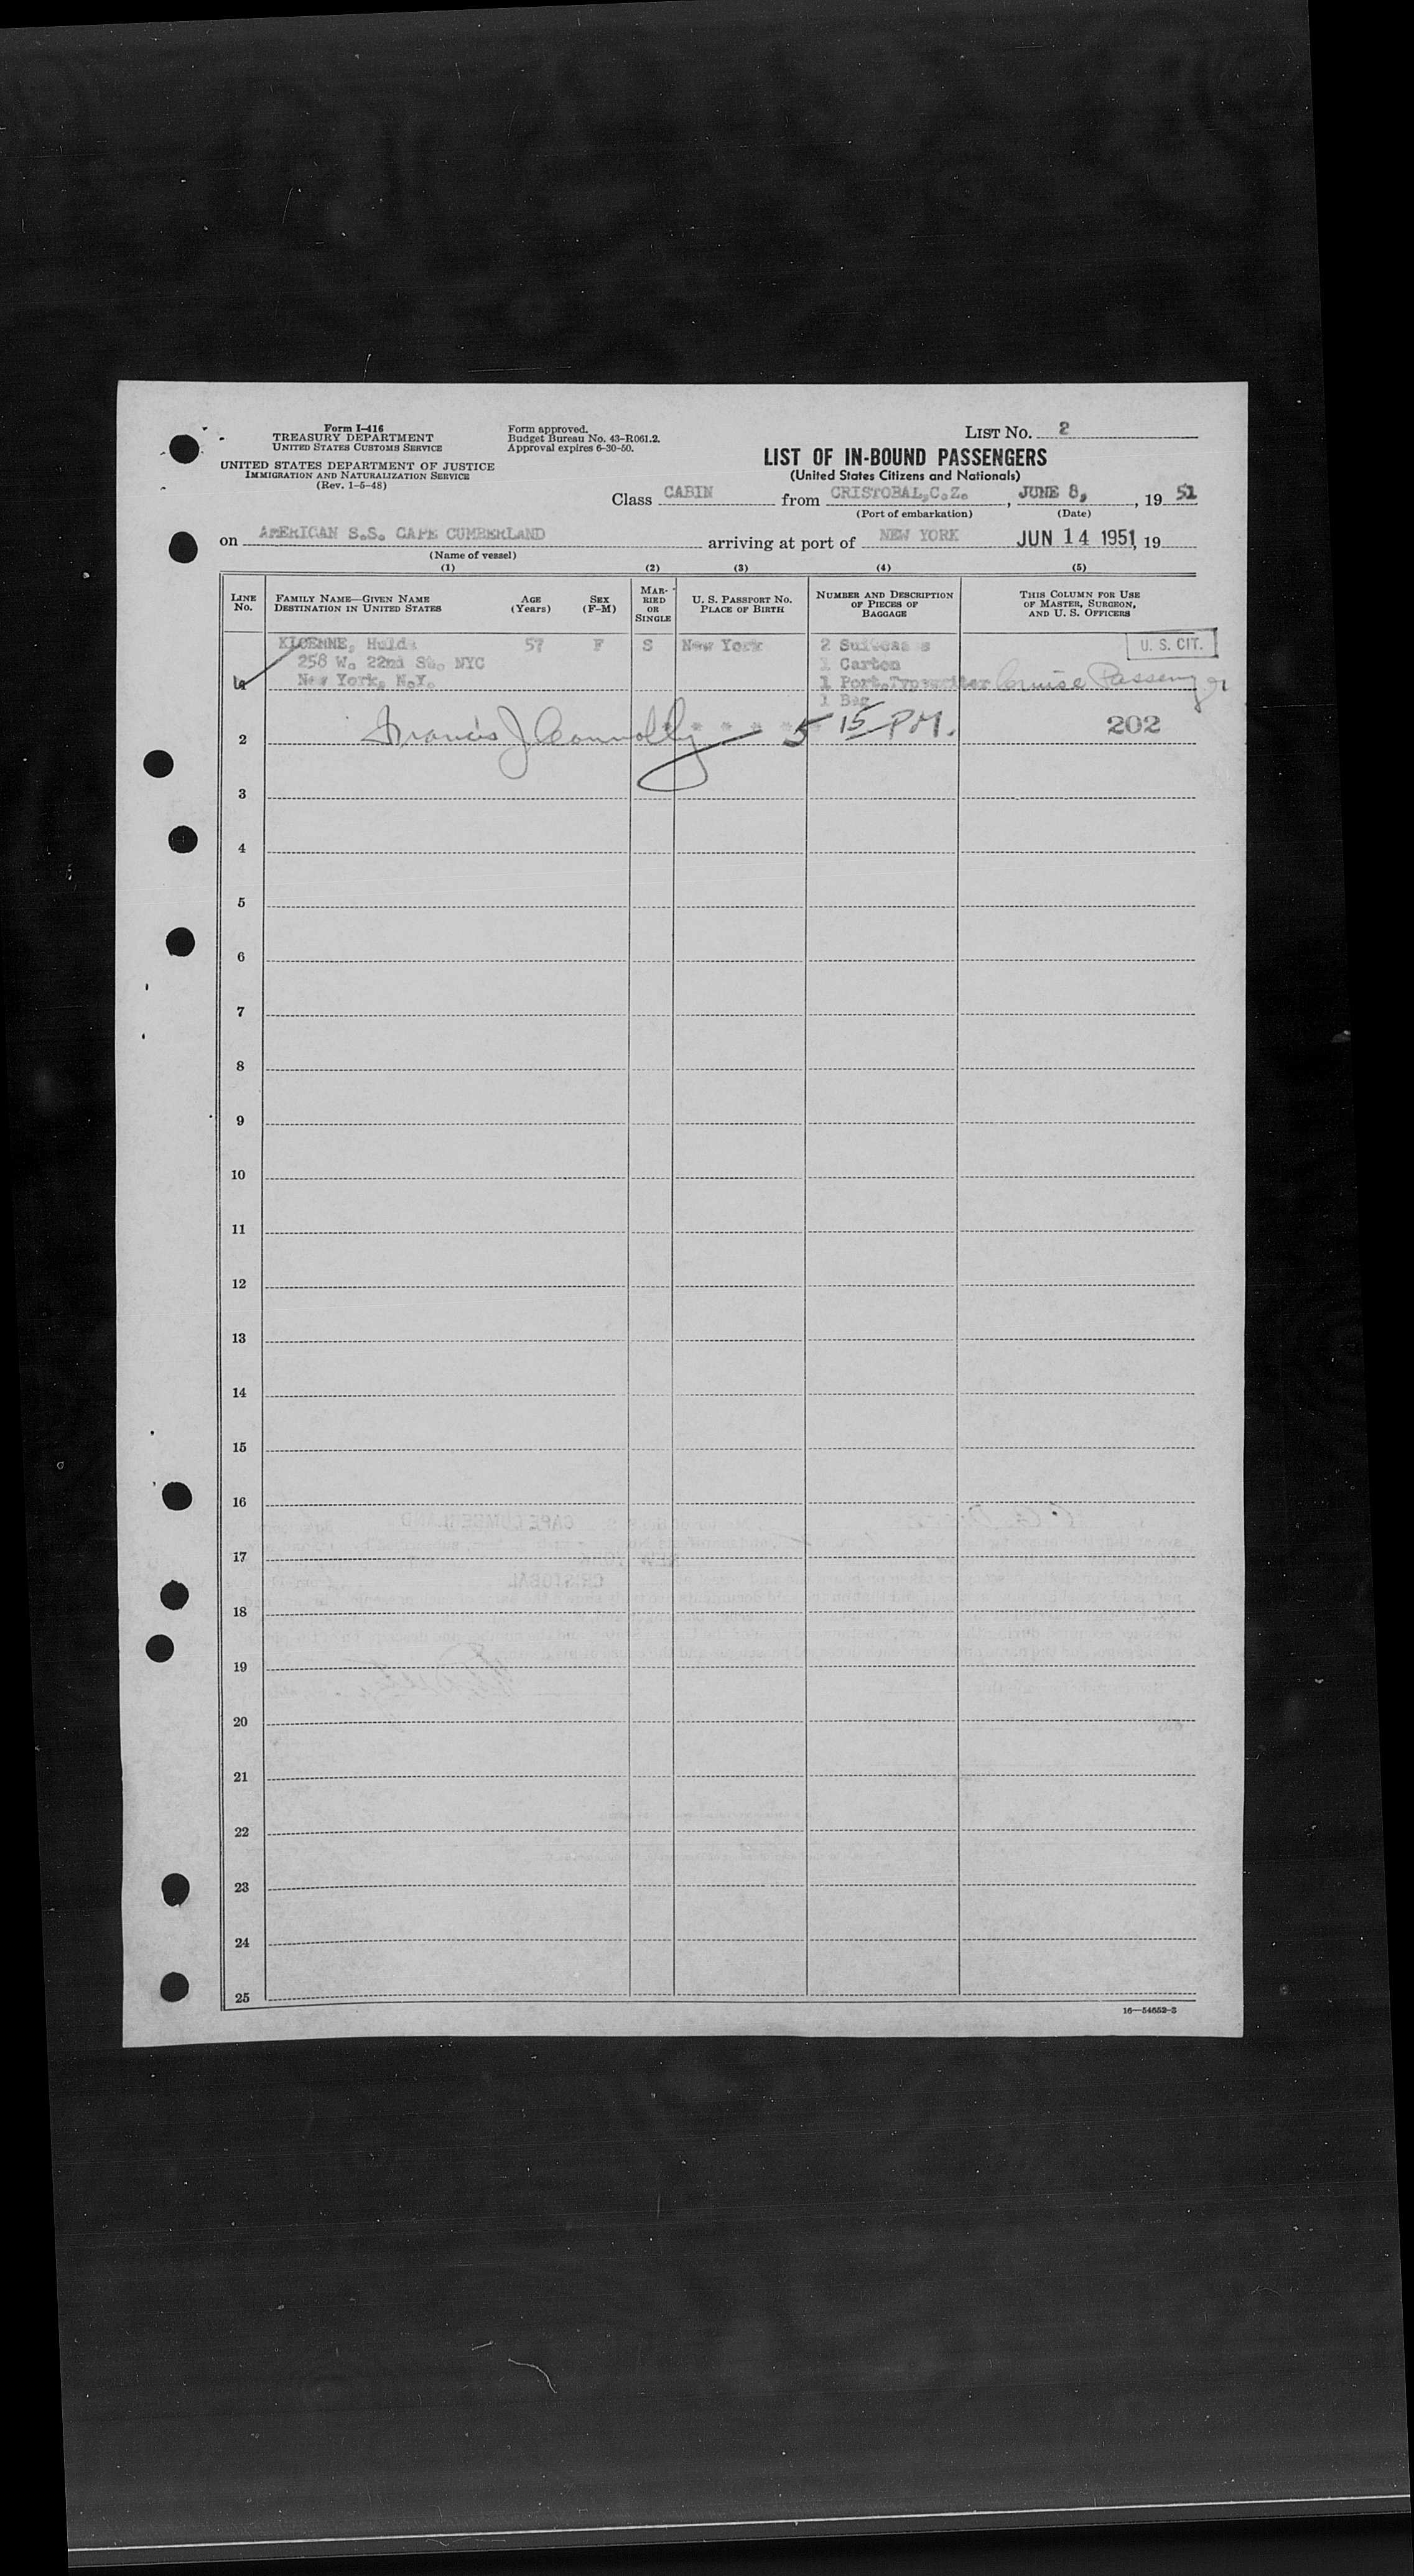 Form I-416
TREASURY DEPARTMENT
UNITED STATES CUSTOMS SERVICE
UNITED STATES DEPARTMENT OF JUSTICE
IMMIGRATION AND NATURALIZATION SERVICE
(Rev. 1-5-48)
Form approved.
Budget Bureau No. 43-R061.2.
Approval expires 6-30-50.
LIST NO. 2
LIST OF IN-BOUND PASSENGERS
(United States Citizens and Nationals)
Class CABIN from CRISTOBAL,C.Z. , JUNE 8, , 19 51
(Port of embarkation) (Date)
on AMERICAN S.S. CAPE CUMBERLAND arriving at port of NEW YORK JUN 14 1951, 19
(Name of vessel)
(1) (2) (3) (4) (5)
LINE NO. FAMILY NAME—GIVEN NAME DESTINATION IN UNITED STATES AGE (Years) SEX (F-M) MARRIED OR SINGLE U. S. PASSPORT NO. PLACE OF BIRTH NUMBER AND DESCRIPTION OF PIECES OF BAGGAGE THIS COLUMN FOR USE OF MASTER, SURGEON, AND U. S. OFFICERS
Hulda 57 F S New York 2 Suitcases U. S. CIT.
258 W. 22nd St. NYC 1 Carton
New York, N.Y. 1 Port.Typewriter Cruise Passenger
1 Bag
2 Francis J Connolly * * * * * 5 15 PM. 202
3
4
5
6
7
8
9
10
11
12
13
14
15
16
17
18
19
20
21
22
23
24
25
16—54652-3